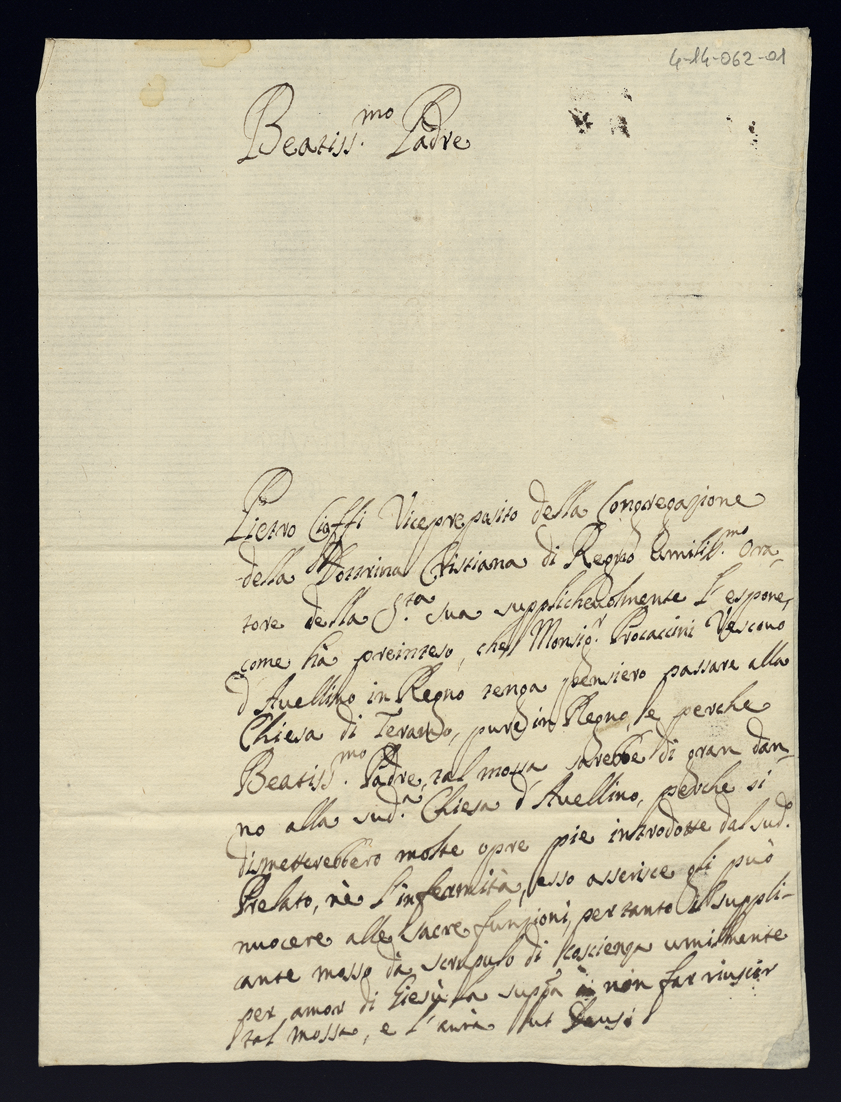 4-14-062-01
Beatiss.mo Padre
Pietro Cioffi Vicepreposito della Congregazione
della Dottrina Cristiana di Regno Umiliss.mo Ora-
tore della S.ta sua supplichevolmente l'espone,
come hà preinteso, che Monsig.r Procaccini Vescovo
d'Avellino in Regno tenga pensiero passare alla
Chiesa di Teramo, pure in Regno, e perche
Beatiss.mo Padre, tal mossa sarebbe di gran dan-
no alla sud.a Chiesa d'Avellino, perche si
dismetterebbero molte opre pie introdotte dal sud.o
Prelato, nè l'infermità, esso asserisce gli può
nuocere alle sacre funzioni, pertanto il suppli-
cante mosso dà scrupulo di coscienza umilmente
per amor di Giesù la suppca à non far riuscir
tal mossa, e l'avrà ut Deus: